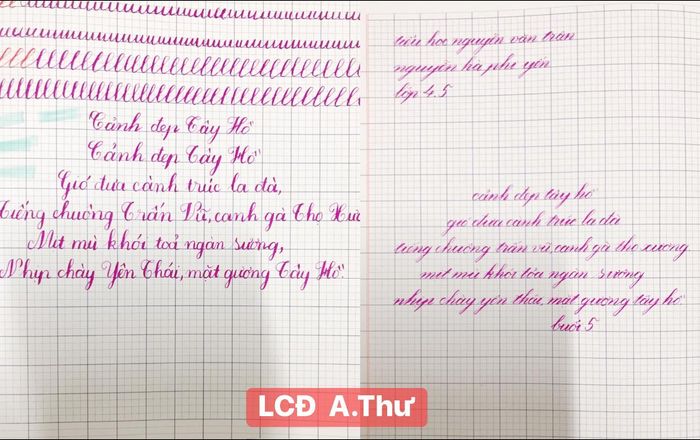 Cảnh đẹp Tây Hồ
Cảnh đẹp Tây Hồ
Gió đưa cành trúc la đà,
Tiếng chuông Trấn Vũ, canh gà Thọ Xươ
Mịt mù khói toả ngàn sương,
Nhịp chày Yên Thái, mặt gương Tây Hồ.
tiểu học nguyễn văn trân
nguyễn hà phi yến
lớp 4.5
cảnh đẹp tây hồ
gió đưa cành trúc la đà
tiếng chuông trấn vũ, canh gà thọ xương
mịt mù khói tỏa ngàn sương
nhịp chày yên thái, mặt gương tây hồ
buổi 5
LCĐ A.Thư